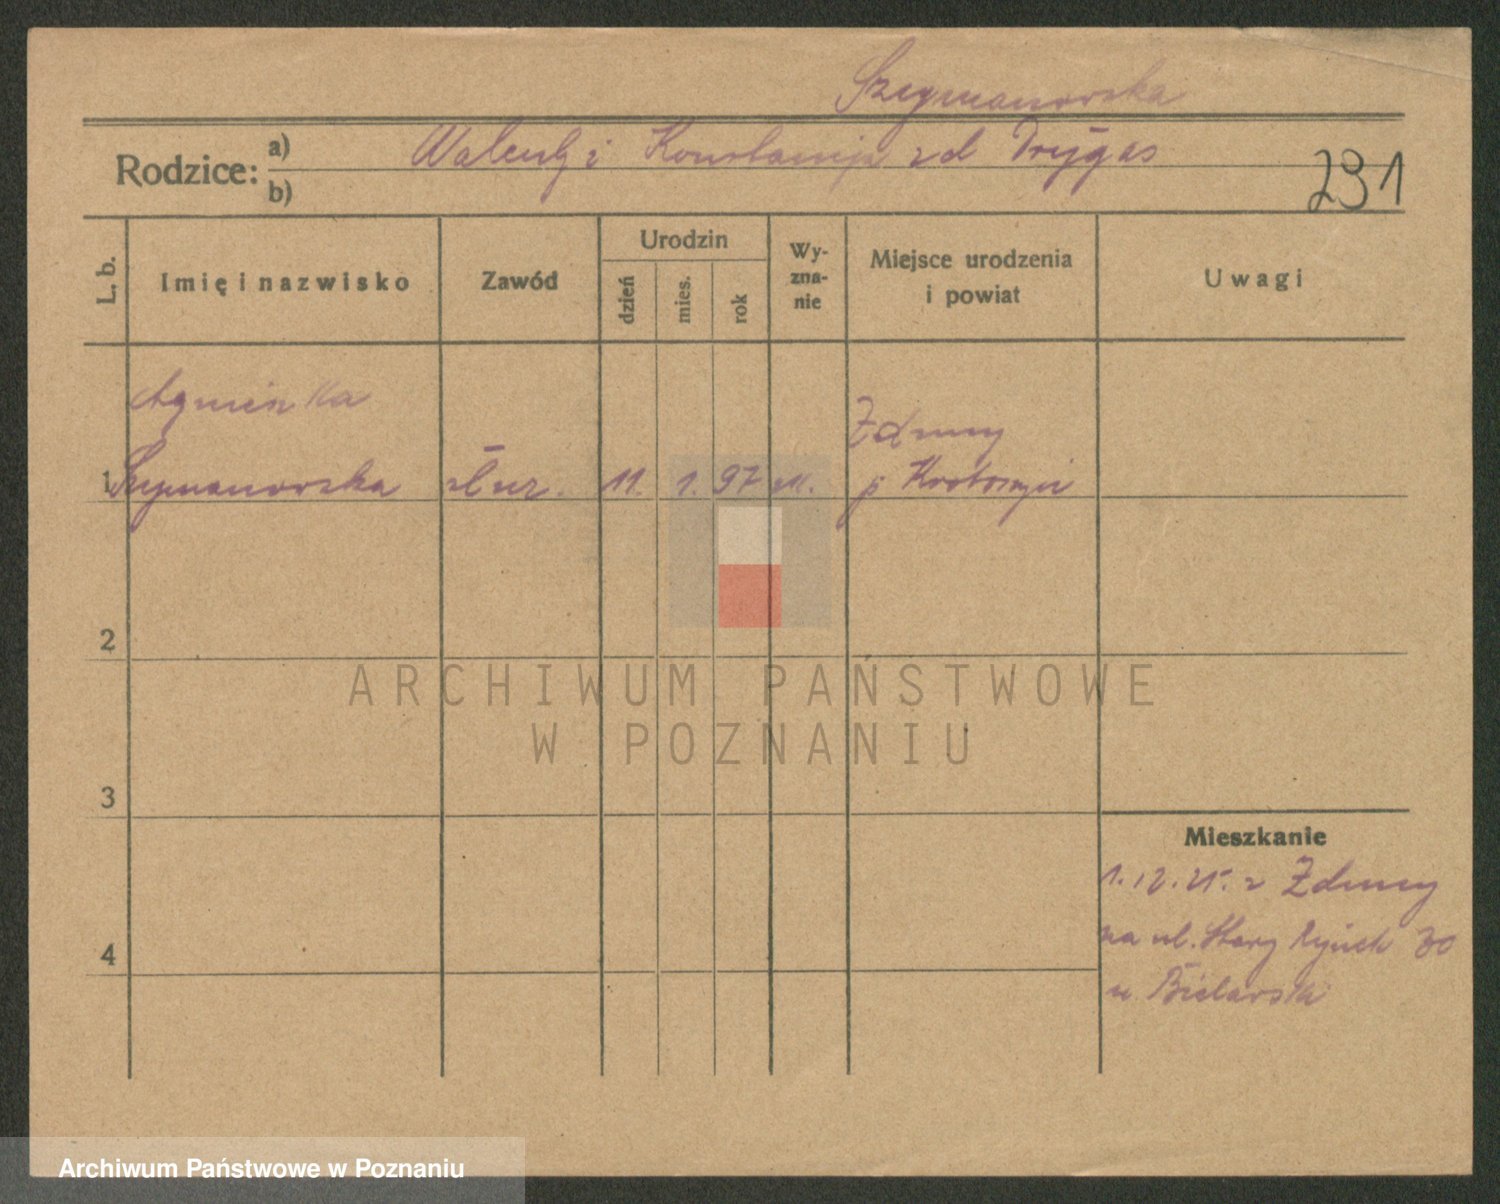 Szymanowska
Rodzice: a) Walenty i Konstancja zd Drygas
b)
291
L. b.
Imię i nazwisko
Zawód
Urodzin
dzień
mies.
rok
Wy-
zna-
nie
Miejsce urodzenia
i powiat
Uwagi
Agnieszka
1 Szymanowska
służ. 11. 1. 97
Zduny
p Krotoszyn
2
3
4
Mieszkanie
1.12.25. z Zduny
na ul. Stary Rynek 30
u Bielawski
ARCHIWUM PAŃSTWOWE
W POZNANIU
Archiwum Państwowe w Poznaniu